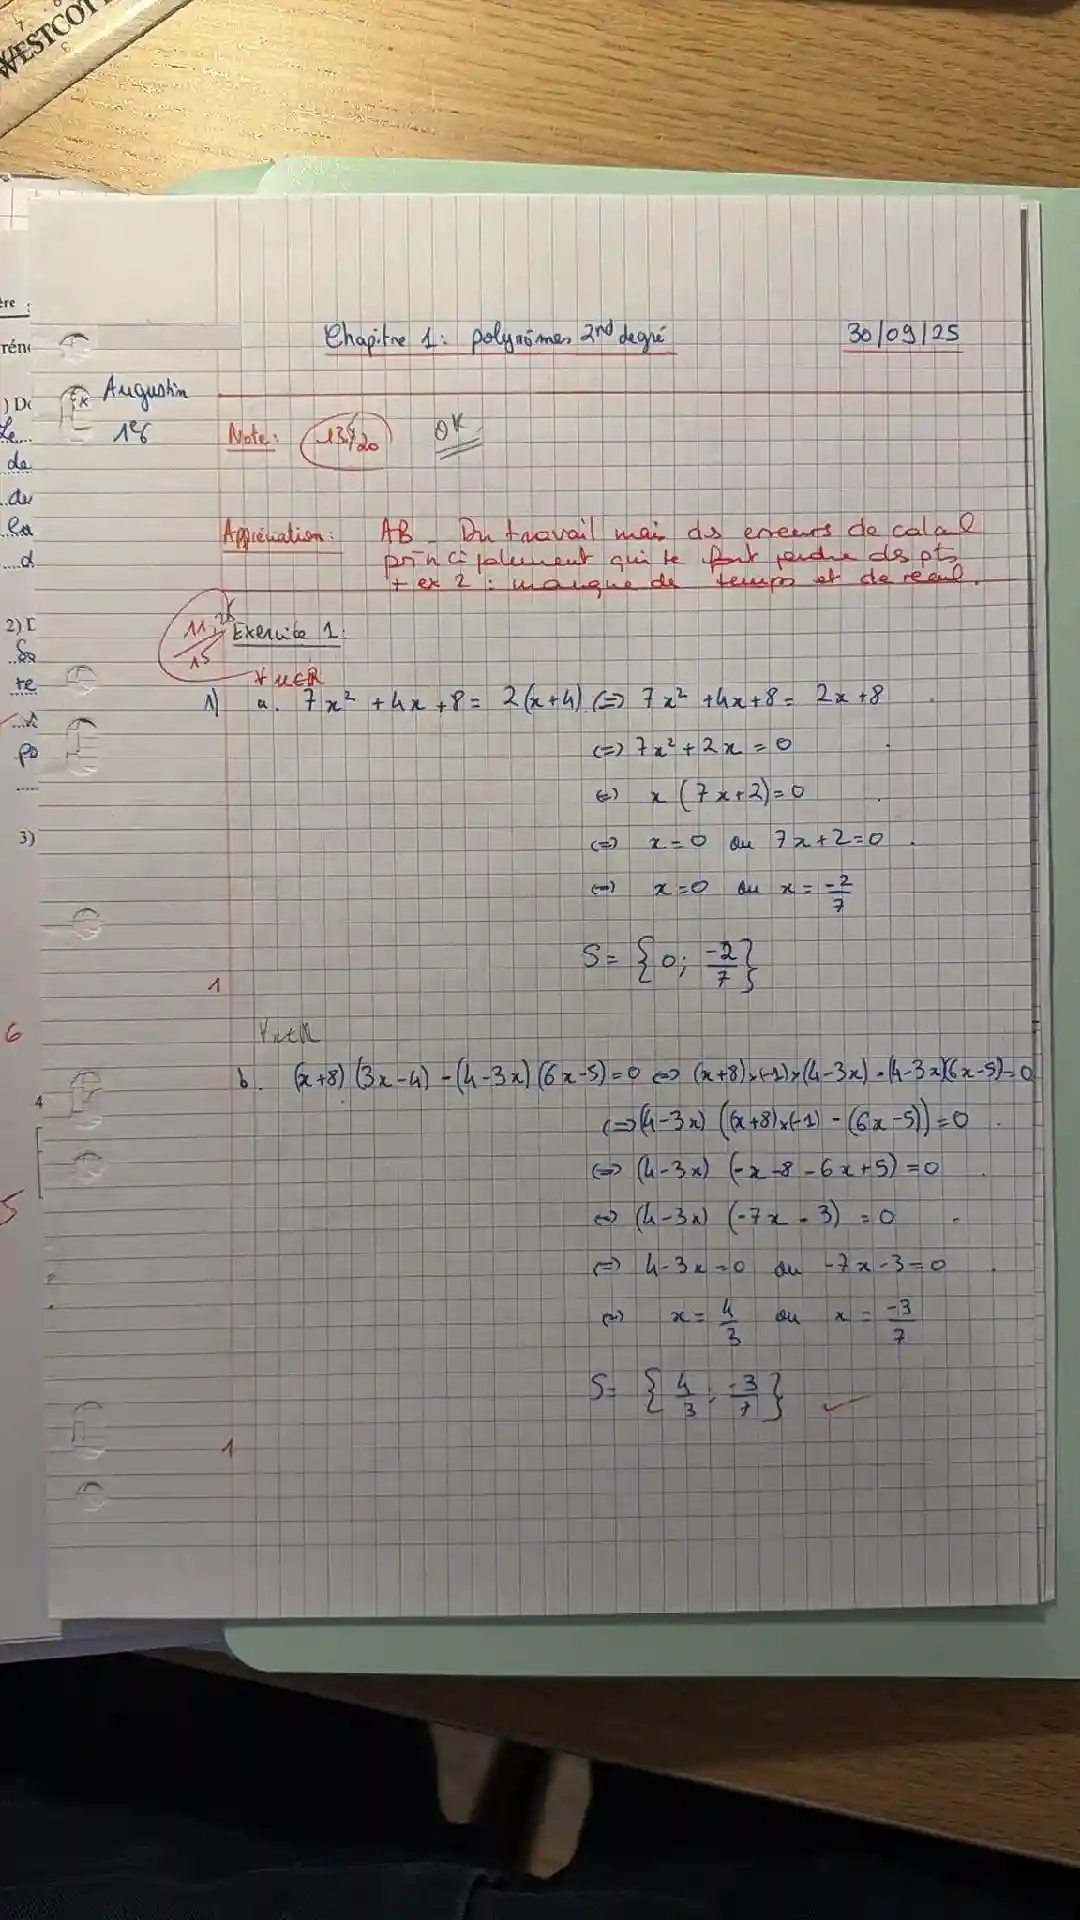 WESTCOTT
ère :
1) Dé
Le....
de
..du
..d
2) D
te
3)
6
4
5
Chapitre 1: polynômes 2nd degré 30/09/25
Augustin
Note: /20 OK
Appréciation: AB _ Du travail mais des erreurs de calcul
principalement qui te font perdre des pts
+ ex 2 : manque de temps et de recul.
11, /15 Exercice 1:
∀x∈R
1) a. 7x² + 4x + 8 = 2(x+4) (=) 7x² + 4x + 8 = 2x + 8
(=) 7x² + 2x = 0
(=) x (7x+2) = 0
(=) x = 0 ou 7x + 2 = 0
(=) x = 0 ou x = -2/7
S = {0; -2/7}
1
∀x∈R
b. (x+8)(3x-4) - (4-3x)(6x-5) = 0 (=) (x+8)×(-1)×(4-3x) - (4-3x)(6x-5) = 0
(=) (4-3x) ((x+8)×(-1) - (6x-5)) = 0
(=) (4-3x) (-x-8-6x+5) = 0
(=) (4-3x) (-7x-3) = 0
(=) 4-3x = 0 ou -7x-3 = 0
(=) x = 4/3 ou x = -3/7
S = {4/3; -3/7} ✓
1